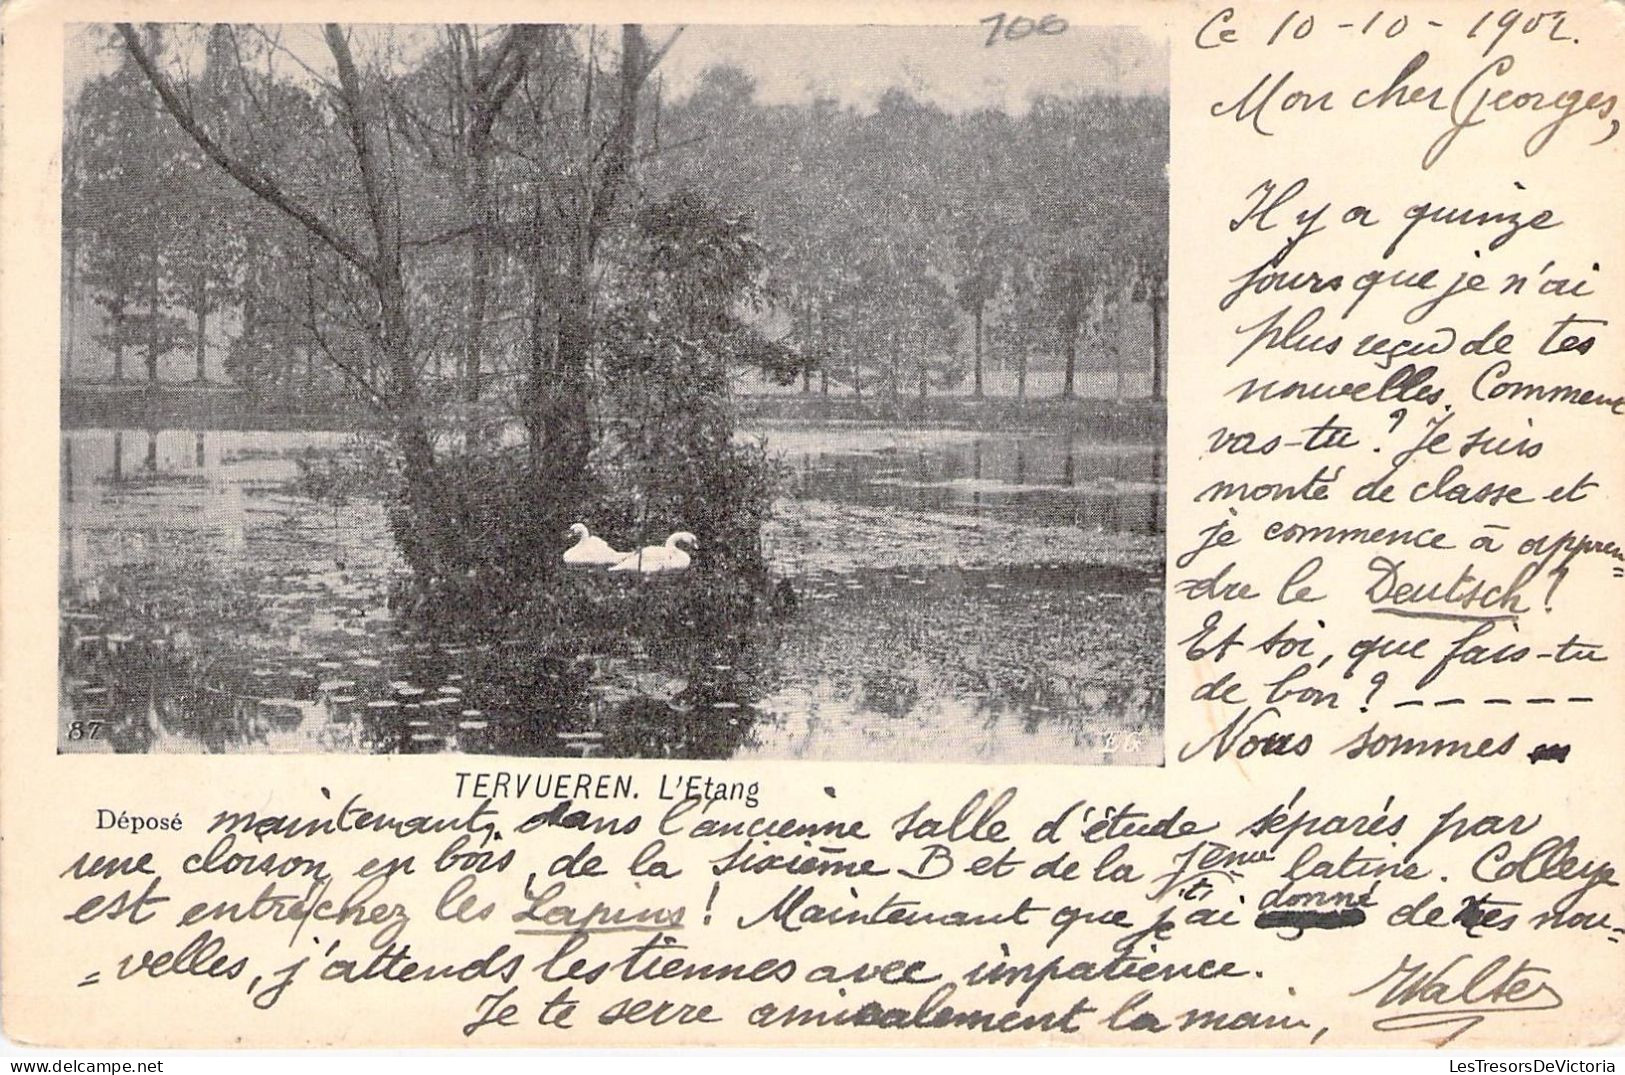 100
Ce 10-10-1902.
Mon cher Georges,
Il y a quinze
jours que je n'ai
plus reçu de tes
nouvelles. Comment
vas-tu? Je suis
monté de classe et
je commence à appren=
-dre le Deutsch!
Et toi, que fais-tu
de bon? - - - - -
Nous sommes
87
TERVUEREN. L'Etang
Déposé
maintenant, dans l'ancienne salle d'étude séparés par
une cloison en bois, de la sixième B et de la 7ème latine. Colleye
est entré chez les Lapins! Maintenant que je t'ai donné de mes nou-
=velles, j'attends les tiennes avec impatience.
Je te serre amicalement la main,
Walter
LesTresorsDeVictoria